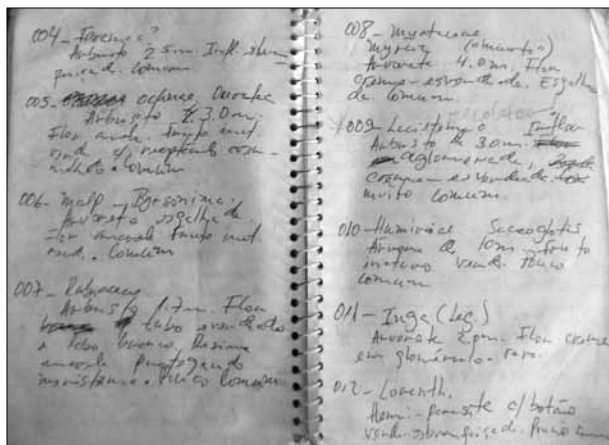 004 - 
Arbusto 2.5m. Infl.
Comum
005 - Ochnace. Ouratea
Arbusto 3.0m.
Flor amar. Fruto imat.
verde c/ receptáculo
Comum
006 - Malp. Byrsonima.
Arvoreta esgalhada.
Flor amarela. Fruto imat.
verd. Comum
007 - Rubiaceae
Arbusto 1.7m. Flor
tubo esverdeado
e lobo branco. Resina
amarela protegendo
meristema. Pouco Comum
008 - Myrtaceae
Myrcia
Arvoreta 4.0m. Flor
creme-esverdeada. Esgalha
da Comum
009 - Inflor
Arbusto de 3.0m.
aglomerada,
creme-esverdeada.
muito Comum.
010 - Humiriace. Sacoglotis
Árvore de 10m. fruto
imaturo verde. Pouco
Comum
011 - Inga (Leg.)
Arvoreta 2m. Flor creme
em glomérulo. rara.
012 - Loranth.
Hemi-parasita c/ botão